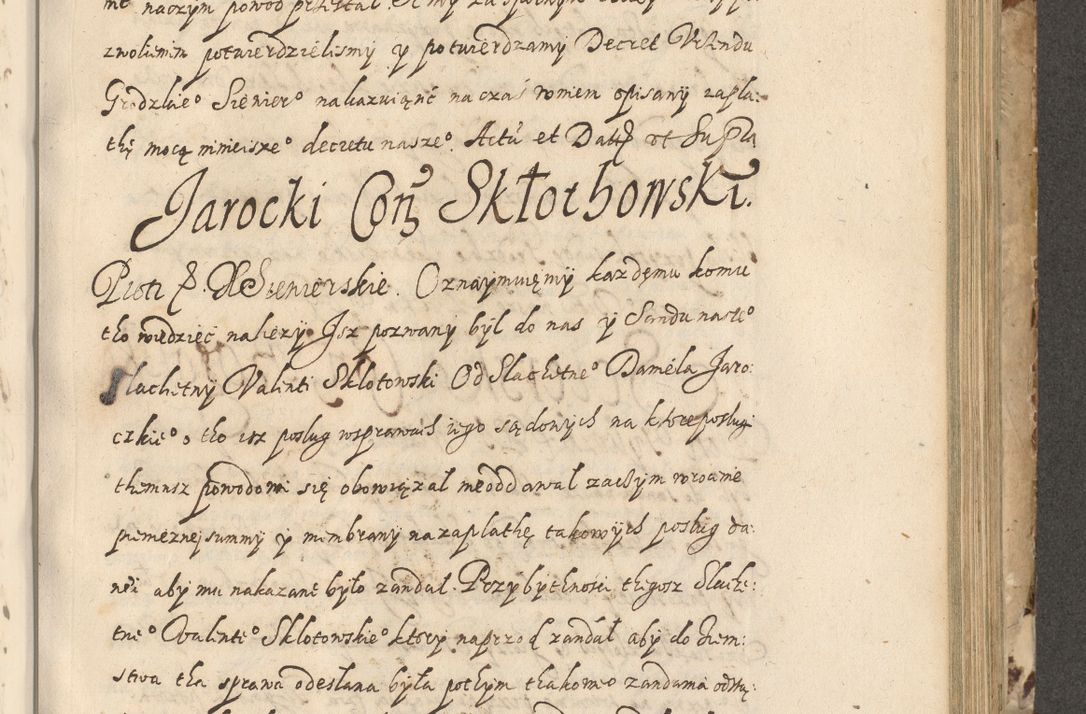 zwolienim potwierdzielismy y potwierdzamy Decret Vrzendu
Grodzkie° Siewier° nakazuiąnc na czas wniem opisany zapla:
thę mocą ninieisze° decretu nasze°. Actũ et Datũ vt Supra
Jarocki Con Skłothowskĩ.
Piotr X. Siewierskie. Oznaymuięmy kazdęmu komu
tho wiedziec nalieży Jsz pozwany był do nas y Sandu nasze°
Slachetny Valenti Sklotowski Od Slachetne° Daniela Jaro:
czkie° o tho isz poslug wsprawach iego sądowych na ktore poslugi
themusz powodowi się obowięzal nieoddawal zaczym wrocenie
pienieznej summy y membrany na zaplathę takowych poslug da:
nei aby mu nakazane było zandal. Przybythnosci thegosz Slache:
tne° Valente° Sklotowskie° ktory naprzod zandal aby do Ziem:
stwa tha sprawa odeslana była pothym thakowe° zandania odstą: